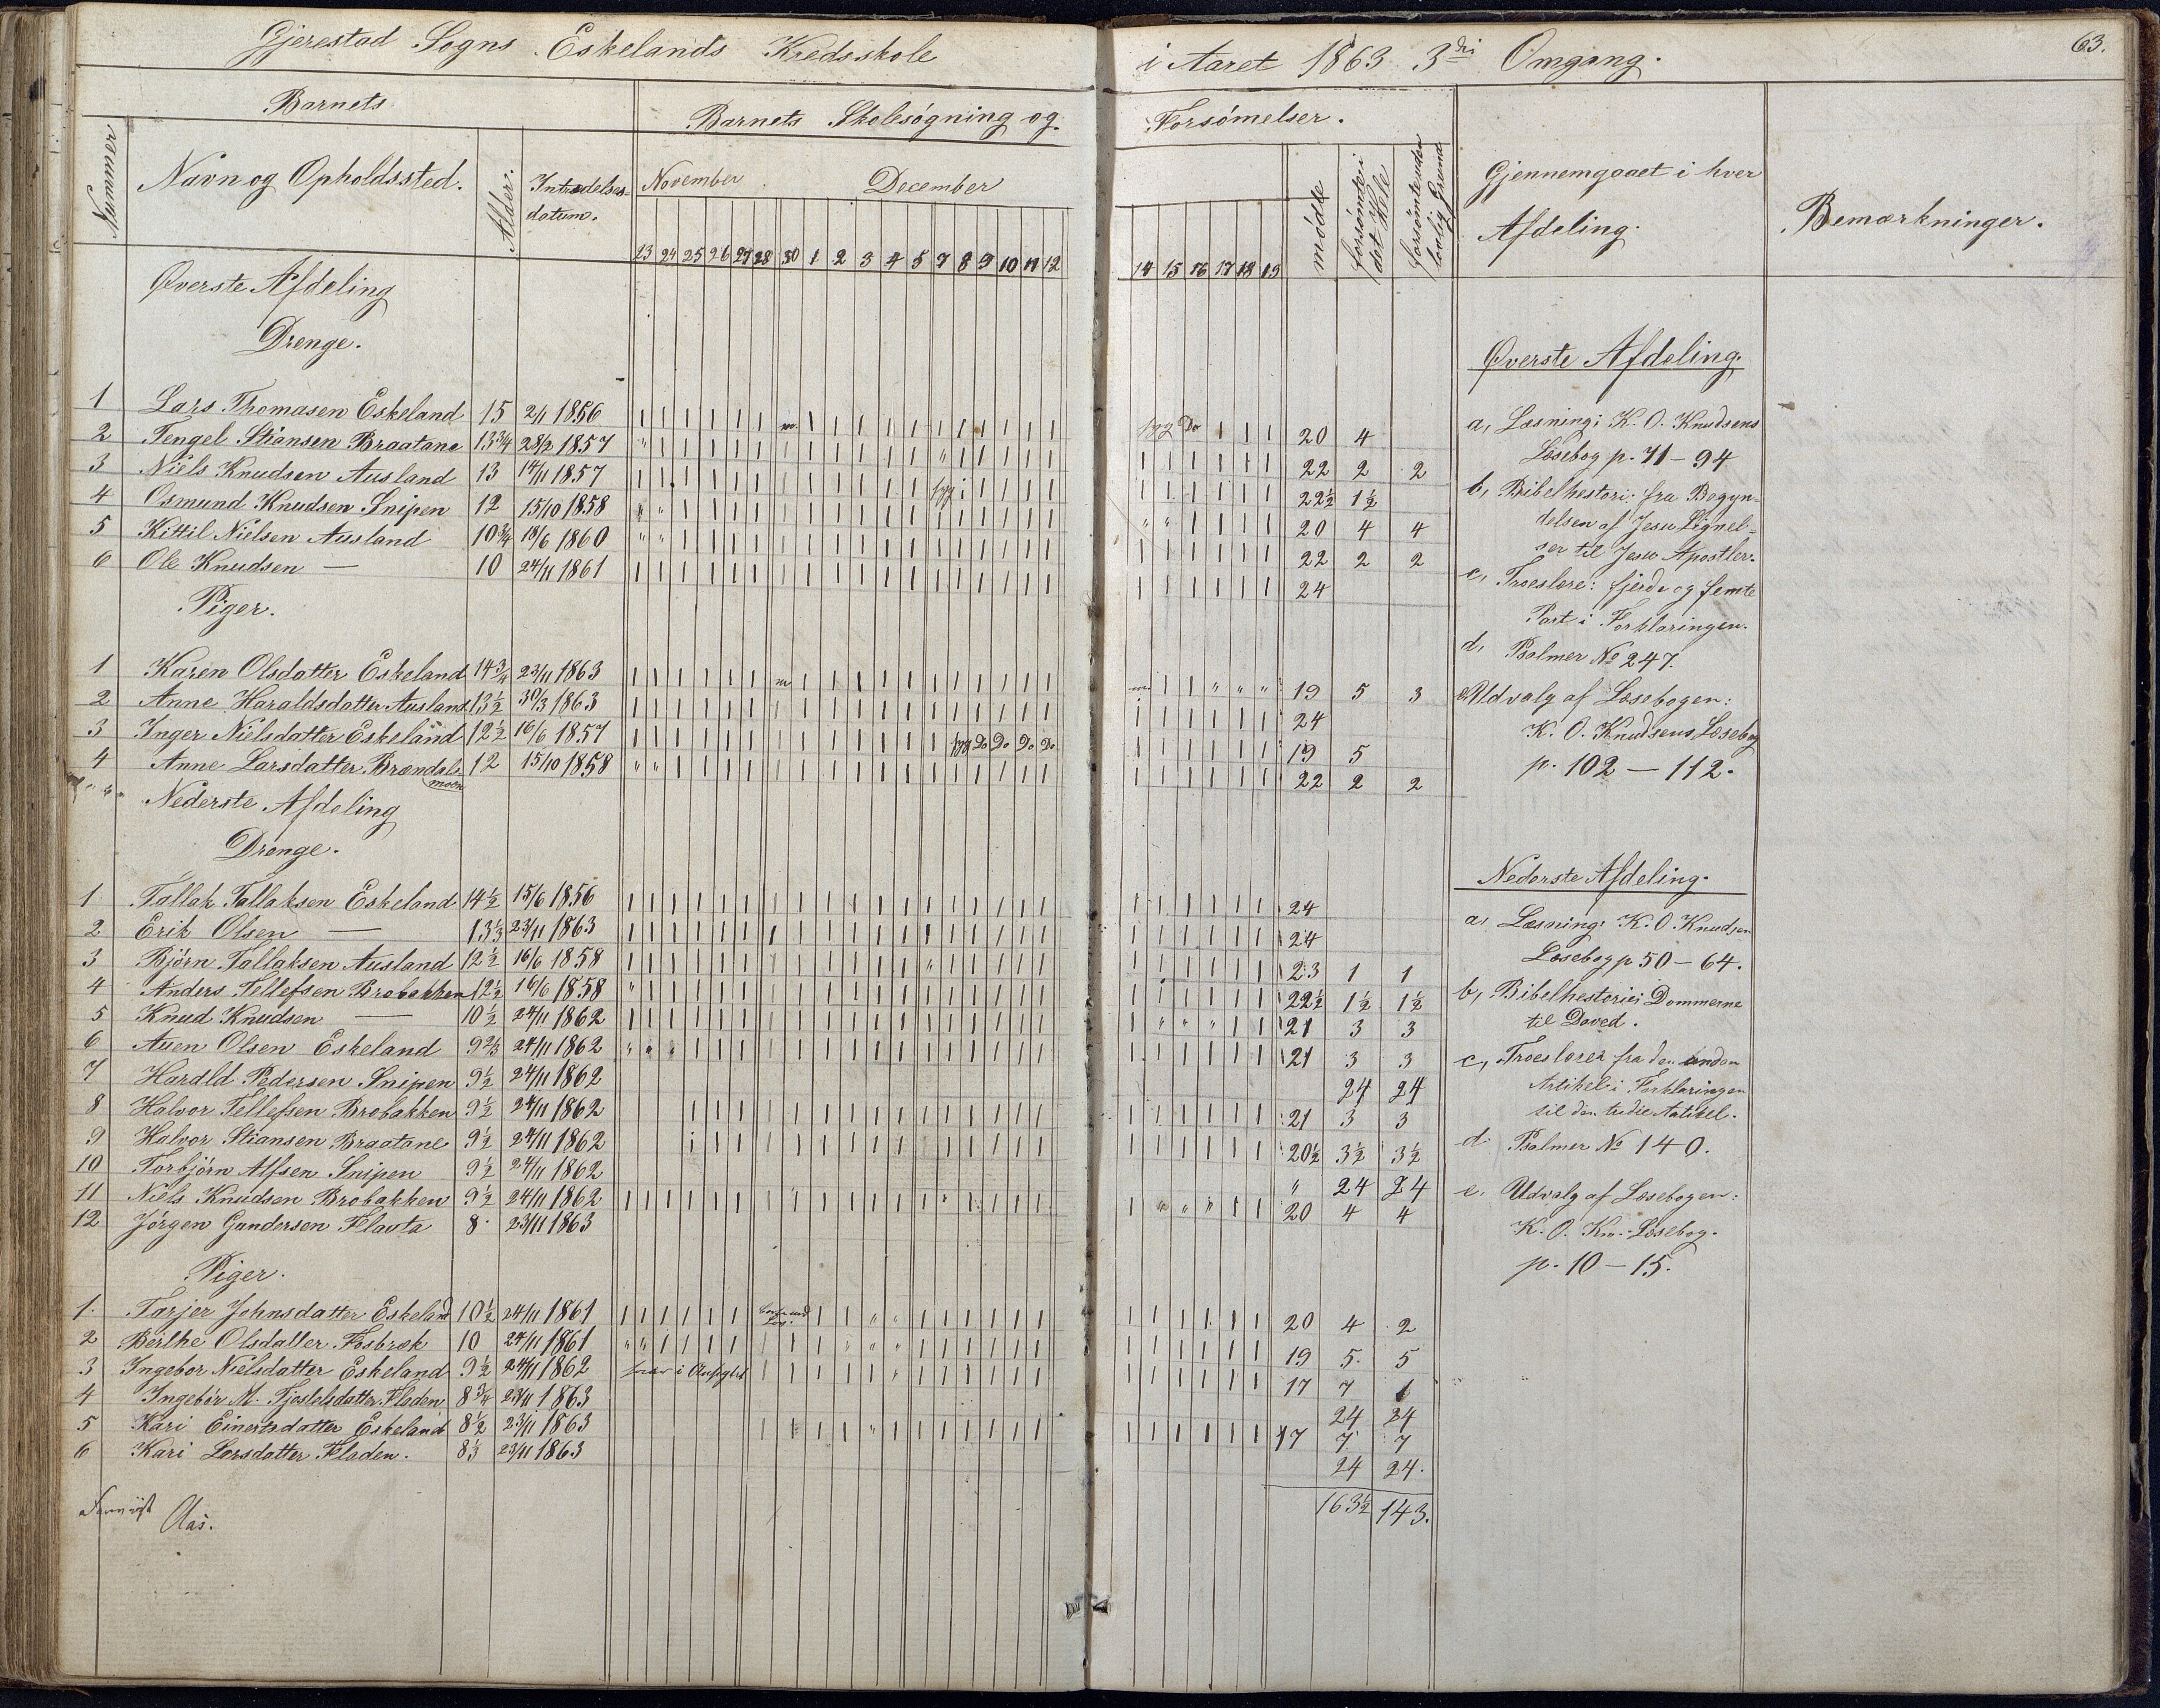 Gjerestad Sogns Eskelands Kredsskole i Aaret 1863 3die Omgang. 63.
Barnets
Barnets Skolesøgning og Forsømelser.
Nummer
Navn og Opholdssted.
Alder.
Intrædelses-
datum.
November December
23 24 25 26 27 28 30 1 2 3 4 5 7 8 9 10 11 12 14 15 16 17 18 19
mødte
forsømte i
det Hele
forsømte uden
lovlig Grund
Gjennemgaaet i hver
Afdeling.
Bemærkninger.
Øverste Afdeling
Drenge.
1 Lars Thomasen Eskeland 15 2/1 1856 20 4
2 Tengel Stiansen Braatane 13 3/4 28/2 1857 22 2 2
3 Niels Knudsen Ausland 13 14/11 1857 22 1/2 1 1/2
4 Osmund Knudsen Snipen 12 15/10 1858 20 4 4
5 Kittil Nielsen Ausland 10 3/4 18/6 1860 22 2 2
6 Ole Knudsen — 10 24/11 1861 24
Piger.
1 Karen Olsdatter Eskeland 14 3/4 23/11 1863 19 5 3
2 Anne Haraldsdatter Ausland 13 1/2 30/3 1863 24
3 Inger Nielsdatter Eskeland 12 1/2 16/6 1857 syg Do Do Do Do 19 5
4 Anne Larsdatter Brændals 12 15/10 1858 22 2 2
moen
Nederste Afdeling
Drenge.
1 Tallak Tallaksen Eskeland 14 1/2 15/6 1856 24
2 Erik Olsen — 13 1/3 23/11 1863 24
3 Bjørn Tallaksen Ausland 12 1/2 16/6 1858 23 1 1
4 Anders Tellefsen Brobakken 12 1/2 16/6 1858 22 1/2 1 1/2 1 1/2
5 Knud Knudsen — 10 1/2 24/11 1862 21 3 3
6 Auen Olsen Eskeland 9 2/3 24/11 1862 21 3 3
7 Hardld Pedersen Snipen 9 1/2 24/11 1862 24 24
8 Halvor Tellefsen Brobakken 9 1/2 24/11 1862 21 3 3
9 Halvor Stiansen Braatane 9 1/2 24/11 1862 20 1/2 3 1/2 3 1/2
10 Torbjørn Alfsen Snipen 9 1/2 24/11 1862 " 24 24
11 Niels Knudsen Brobakken 9 1/2 24/11 1862 20 4 4
12 Jørgen Gundersen Flavta 8 23/11 1863
Piger.
1. Tarjer Johnsdatter Eskeland 10 1/2 24/11 1861 20 4 2
2 Berthe Olsdatter Fosbræk 10 24/11 1861 19 5 5
3 Ingebor Nielsdatter Eskeland 9 1/2 24/11 1862 17 7 1
4 Ingebór M. Tjøstelsdatter Fladen 8 3/4 23/11 1863 24 24
5 Kari Einertsdatter Eskeland 8 1/2 23/11 1863 17 7 7
6 Kari Larsdatter Fladen. 8 1/3 23/11 1863 24 24.
163 1/2 143.
Aas.
Øverste Afdeling.
a, Læsning: K. O. Knudsens
Læsebog p. 71 – 94
b, Bibelhestori: fra Begyn-
delsen af Jesu Lignel-
ser til Jesu Apostler.
c, Troeslære: fjerde og femte
Part i Forklaringen.
d, Psalmer No 247.
e Udvalg af Læsebogen:
K. O. Knudsens Læsebog
p. 102 — 112.
Nederste Afdeling.
a, Læsning: K. O. Knudsen
Læsebog p 50 – 64.
b, Bibelhestorie: Dommerne
til David.
c, Troeslærer fra den anden
Artikel i Forklaringen
til den tredie Artikel.
d Psalmer No 140.
e. Udvalg af Læsebogen:
K. O. Kn. Læsebog.
p. 10 – 15.